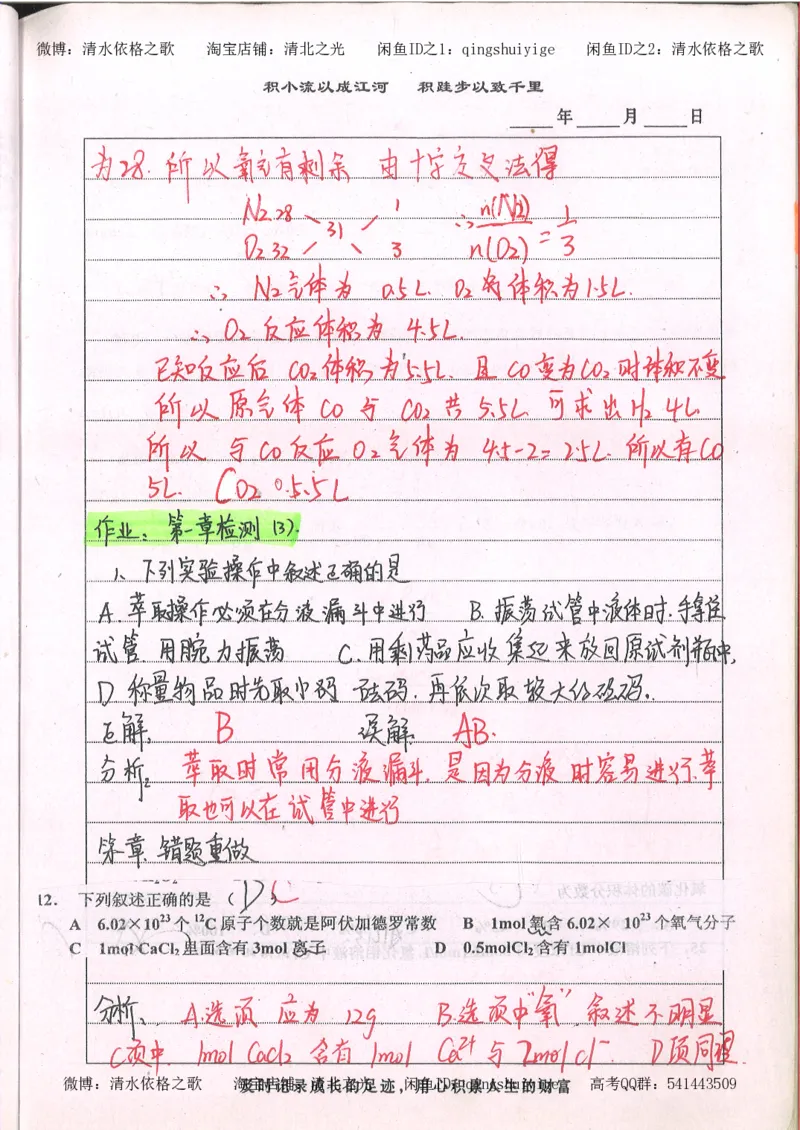 微博：清水依格之歌 淘宝店铺：清北之光 闲鱼ID之1：qingshuiyige 闲鱼ID之2：清水依格之歌
积小流以成江河 积跬步以致千里
____年____月____日
为28. 所以氧气有剩余 由十字交叉法得
N2 28 1 ∴ n(N2) 1
31 —— = —
O2 32 3 n(O2) 3
∴ N2气体为 0.5L. O2气体积为1.5L.
∴ O2 反应体积为 4.5L.
已知反应后 CO2体积为5.5L. 且 CO变为CO2时体积不变
所以原气体 CO 与 CO2 共 5.5L 可求出 H2 4L
所以 与CO反应 O2气体为 4.5-2=2.5L. 所以有CO
5L. CO2 0.5L
作业：第一章检测(3).
1、下列实验操作中叙述正确的是
A. 萃取操作必须在分液漏斗中进行 B. 振荡试管中液体时.手拿住
试管.用腕力振荡 C. 用剩药品应收集起来放回原试剂瓶中,
D 称量物品时先取小砝码.再依次取较大的砝码.
正解. B 误解. AB.
分析： 萃取时常用分液漏斗.是因为分液时容易进行.萃
取也可以在试管中进行
第一章 错题重做
12. 下列叙述正确的是（D） C
A 6.02×10²³个¹²C原子个数就是阿伏加德罗常数 B 1mol氧含6.02× 10²³个氧气分子
C 1mol CaCl₂里面含有3mol离子 D 0.5molCl₂含有1molCl
分析： A.选项 应为 12g B.选项中"氧".叙述不明显
C项中. 1mol CaCl2 含有 1mol Ca2+ 与 2mol cl-. D项同理.
微博：清水依格之歌 淘宝店铺：清北之光 闲鱼ID：qingshuiyige 高考QQ群：541443509
及时记录成长的足迹，用心积累人生的财富